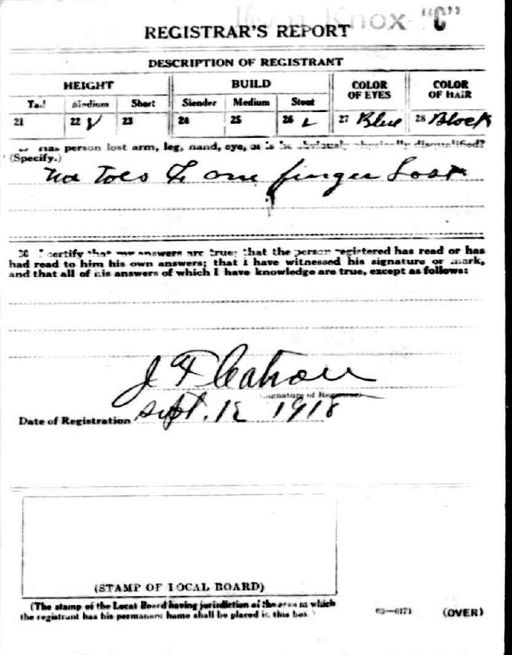 Knox "C"
REGISTRAR'S REPORT
DESCRIPTION OF REGISTRANT
HEIGHT BUILD COLOR OF EYES COLOR OF HAIR
Tall Medium Short Slender Medium Stout
21 22 ✓ 23 24 25 26 ✓ 27 Blue 28 Black
Has person lost arm, leg, hand, eye, or is he obviously physically disqualified?
(Specify.)
Toes & one finger Lost
30 I certify that my answers are true; that the person registered has read or has
had read to him his own answers; that I have witnessed his signature or mark,
and that all of his answers of which I have knowledge are true, except as follows:
(Signature of Registrar)
Date of Registration Sept. 12 1918
(STAMP OF LOCAL BOARD)
(The stamp of the Local Board having jurisdiction of the area in which
the registrant has his permanent home shall be placed in this box.)
03—6171 (OVER)